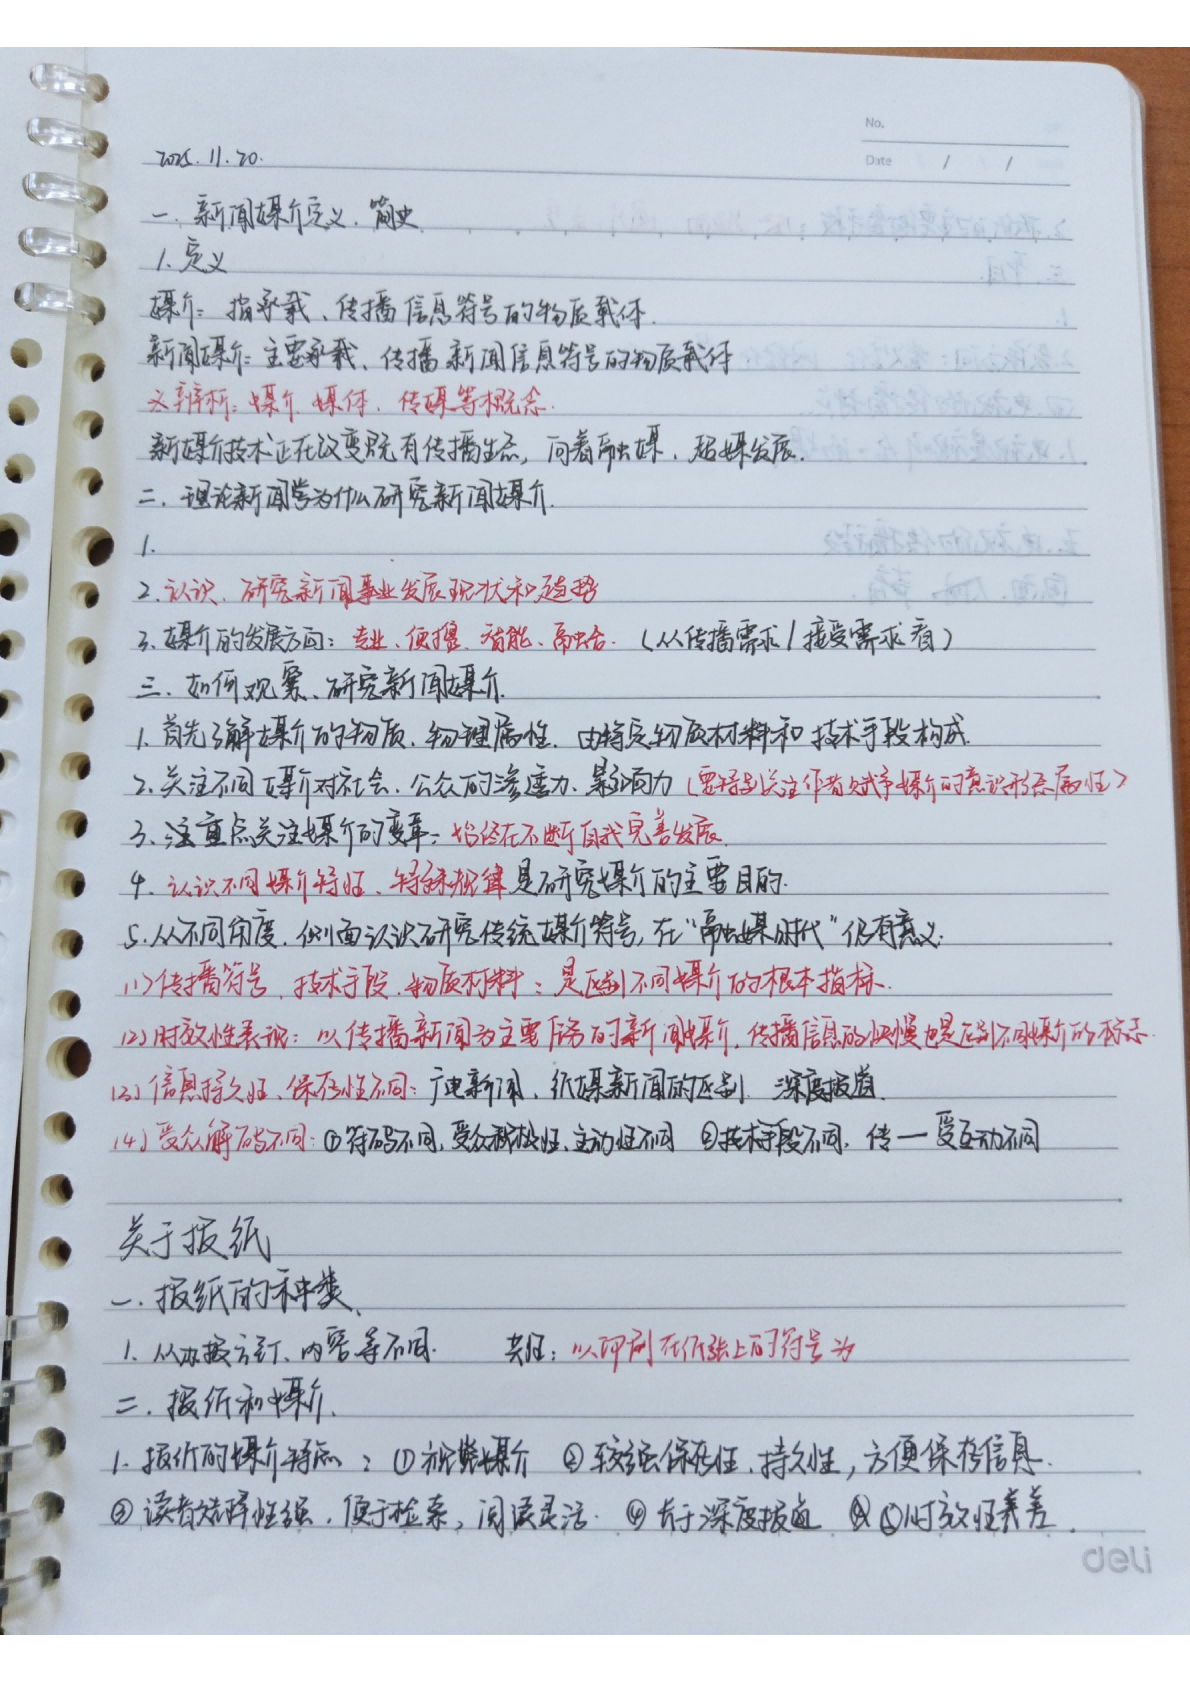 No.
Date / /
2025.11.20.
一. 新闻媒介定义、简史
1. 定义
媒介：指承载、传播信息符号的物质载体.
新闻媒介：主要承载、传播新闻信息符号的物质载体
义辨析：媒介、媒体、传媒等概念.
新媒介技术正在改变既有传播生态, 向着融媒、超媒发展.
二. 理论新闻学为什么研究新闻媒介.
1.
2. 认识、研究新闻事业发展现状和趋势
3. 媒介的发展方向：专业、便捷、智能、融合. (从传播需求/接受需求看)
三. 如何观察、研究新闻媒介.
1. 首先了解媒介的物质、物理属性. 由特定物质材料和技术手段构成.
2. 关注不同媒介对社会、公众的渗透力、影响力 (要特别关注作者赋予媒介的意识形态属性)
3. 注重点关注媒介的变革：始终在不断自我完善发展.
4. 认识不同媒介特征、特殊规律是研究媒介的主要目的.
5. 从不同角度、侧面认识研究传统媒介符号, 在“融媒时代”仍有意义.
(1) 传播符号、技术手段、物质材料：是区别不同媒介的根本指标.
(2) 时效性表现：以传播新闻为主要任务的新闻媒介, 传播信息的快慢也是区别不同媒介的标志.
(3) 信息持久性、保存性不同：广电新闻、纸媒新闻的区别. 深度报道.
(4) 受众解码不同：①符码不同, 受众积极性、主动性不同 ②技术手段不同, 传—受互动不同
关于报纸
一. 报纸的种类、
1. 从办报方针、内容等不同. 共性：以印刷在纸张上的符号为
二. 报纸和媒介.
1. 报纸的媒介特点：①视觉媒介 ②较强保存性、持久性, 方便保存信息.
③读者选择性强, 便于检索, 阅读灵活. ④长于深度报道 ⑤时效性差.
deli